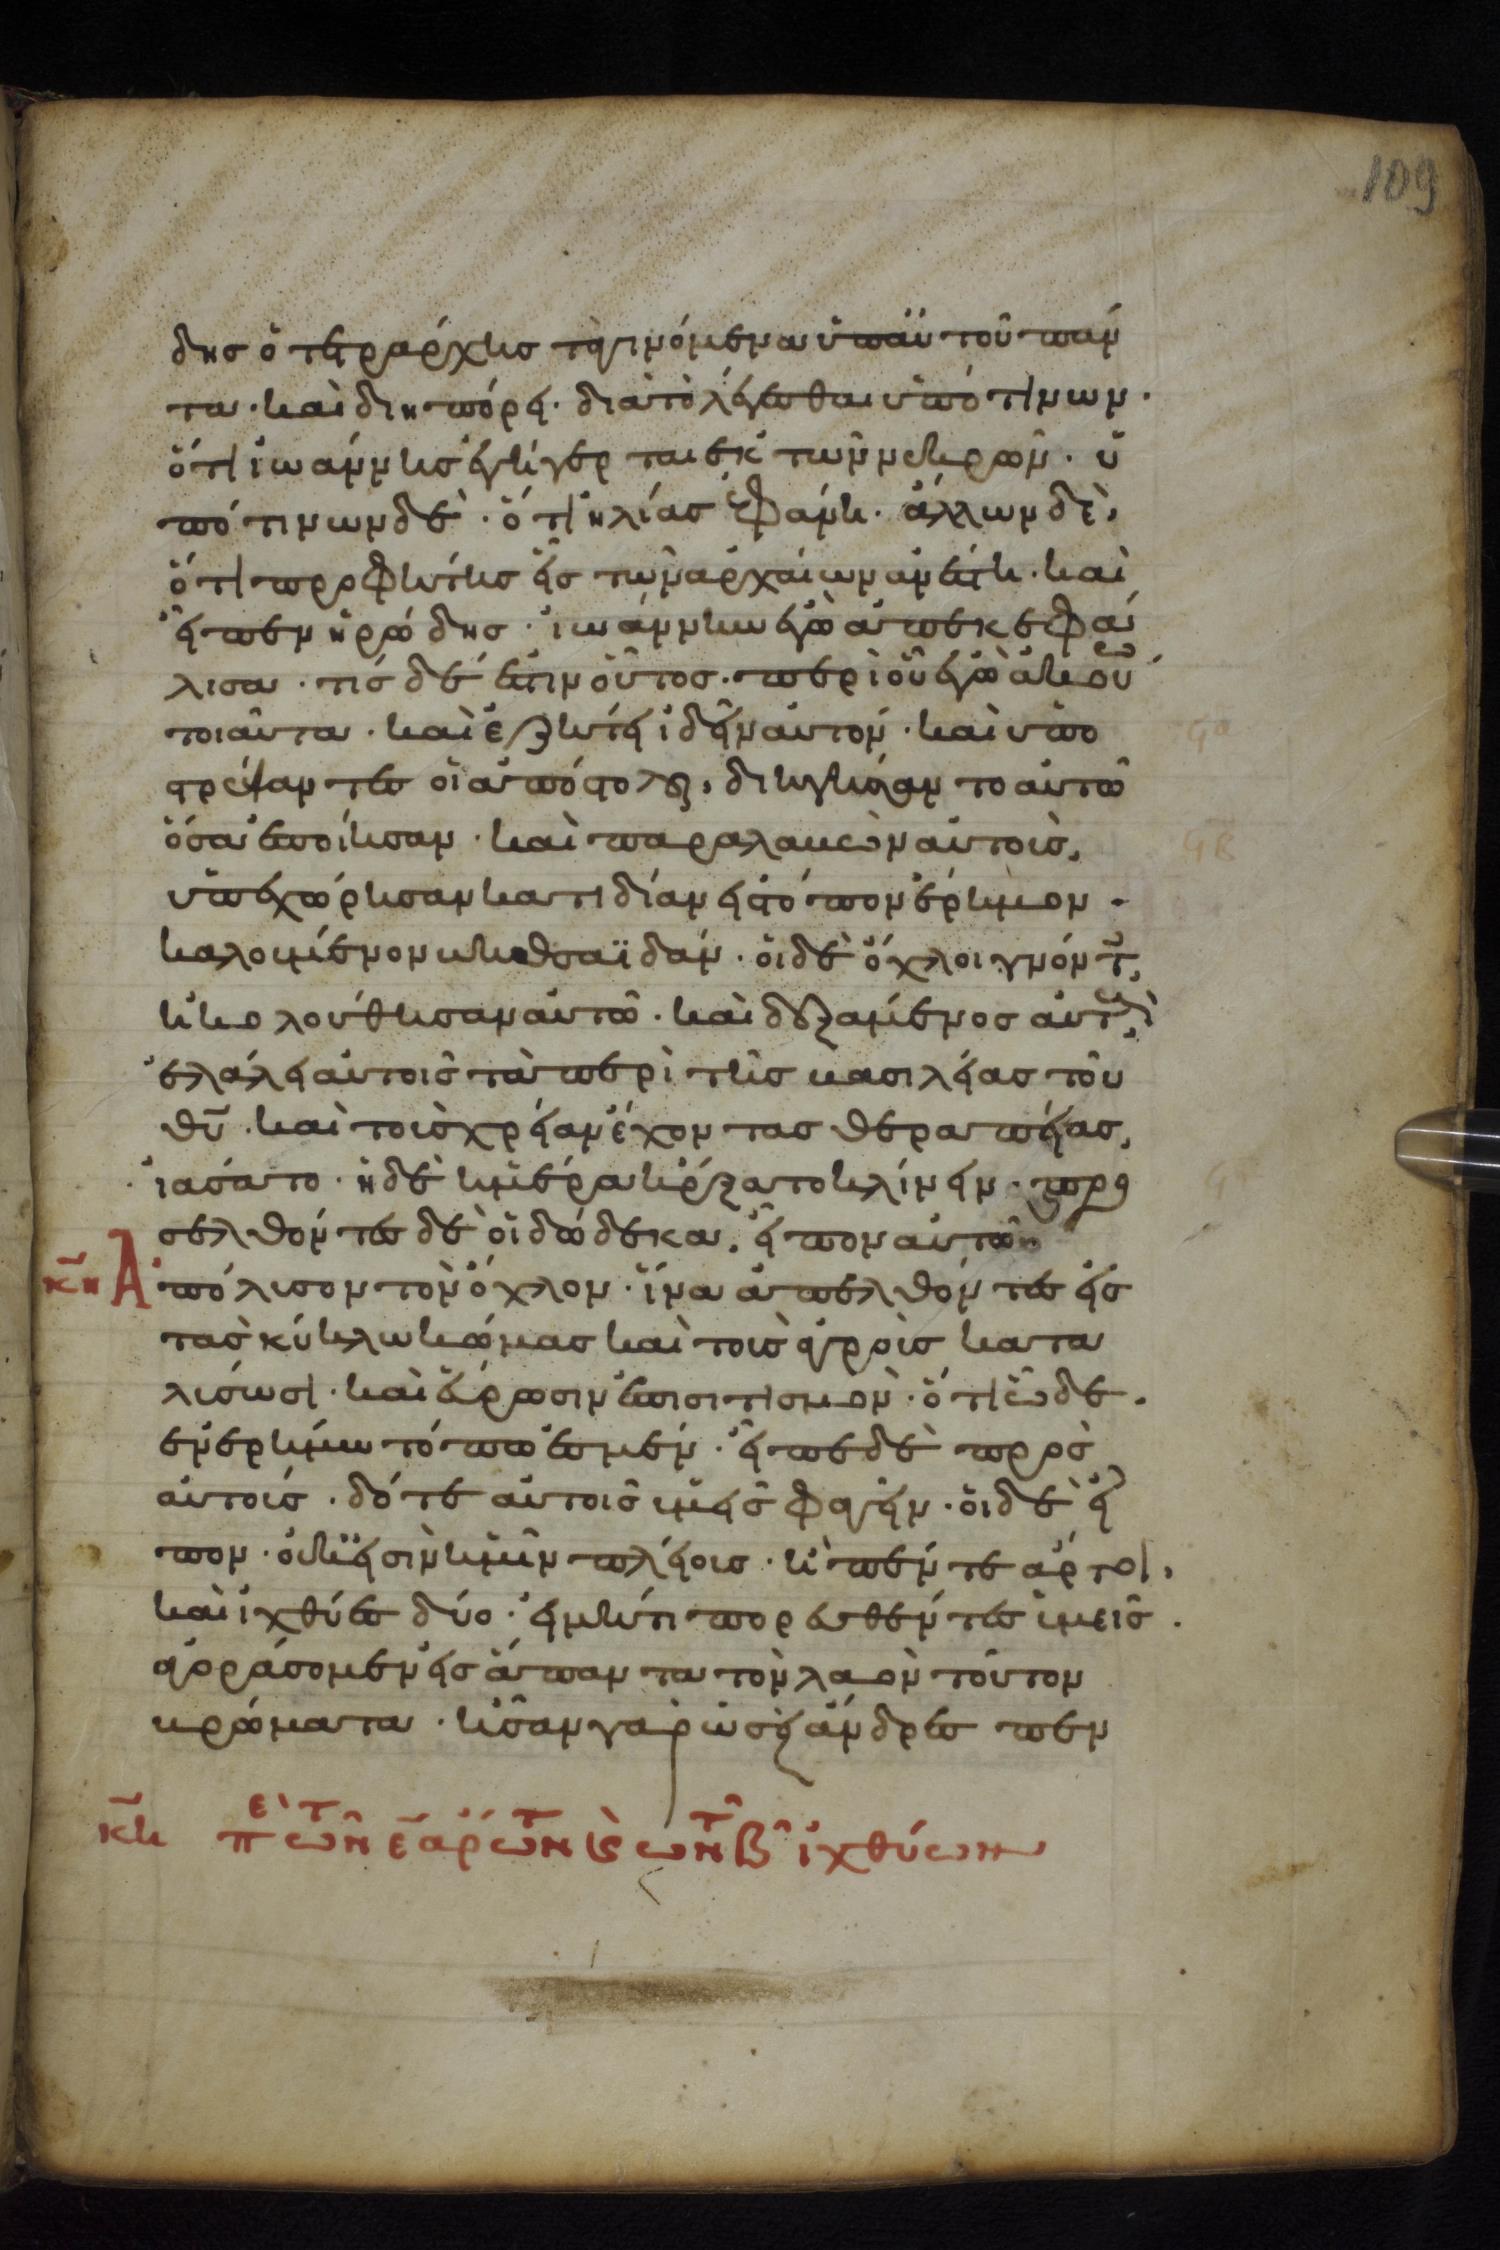 109
δης ὁ τετράρχης τὰ γινόμενα ὑπ αὐτοῦ πάν
τα · καὶ διηπόρει · διὰ τὸ λέγεσθαι ὑπό τινων ·
ὅτι ἰωάννης ἐγήγερται ἐκ τῶν νεκρῶν · ὑ
πό τινων δὲ · ὅτι ἡλίας ἐφάνη · ἄλλων δὲ,
ὅτι προφήτης εἷς τῶν ἀρχαίων ἀνέστη · καὶ
εἶπεν ἡρώδης · ἰωάννην ἐγὼ ἀπεκεφά
λισα · τίς δέ ἐστιν οὗτος · περὶ οὗ ἐγὼ ἀκούω
τοιαῦτα · καὶ ἐζήτει ἰδεῖν αὐτόν · καὶ ὑπο
στρέψαντες οἱ ἀπόστολοι, διηγήσαντο αὐτῶ
ὅσα ἐποίησαν · καὶ παραλαβὼν αὐτοὺς,
ὑπεχώρησαν κατιδίαν εἰς τόπον ἔρημον ·
καλουμένον βηθσαϊδάν · οἱ δὲ ὄχλοι γνόντες,
ἠκολούθησαν αὐτῶ · καὶ δεξάμενος αὐτοὺς,
ἐλάλει αὐτοῖς τὰ περὶ τῆς βασιλείας τοῦ
θῦ · καὶ τοὺς χρείαν ἔχοντας θεραπείας,
ἰάσατο · ἡ δὲ ἡμέρα ἤρξατο κλίνειν · προσ
σελθόντες δὲ οἱ δώδεκα, εἶπον αὐτῶ
κη Ἀπόλισον τὸν ὄχλον · ἵνα ἀπελθόντες εἰς
τὰς κύκλω κώμας καὶ τοὺς ἀγροὺς κατα
λύσωσι · καὶ εὕρωσιν ἐπισιτισμὸν · ὅτι ὧδε ·
ἐν ἐρήμω τόπω ἐσμέν · εἶπε δὲ πρὸς
αὐτούς · δότε αὐτοῖς ὑμεῖς φαγεῖν · οἱ δὲ εἶ
πον · οὐκ εἰσὶν ἡμῖν πλείους · ἢ πέντε ἄρτοι,
καὶ ἰχθύες δύο · εἰ μήτι πορευθέντες ἡμεῖς ·
ἀγοράσομεν εἰς ἅπαντα τὸν λαὸν τοῦτον
βρώματα · ἦσαν γὰρ ὡσεὶ ἄνδρες πεν
κη πε τῶν ε ἄρτων κ τῶν β ἰχθύων